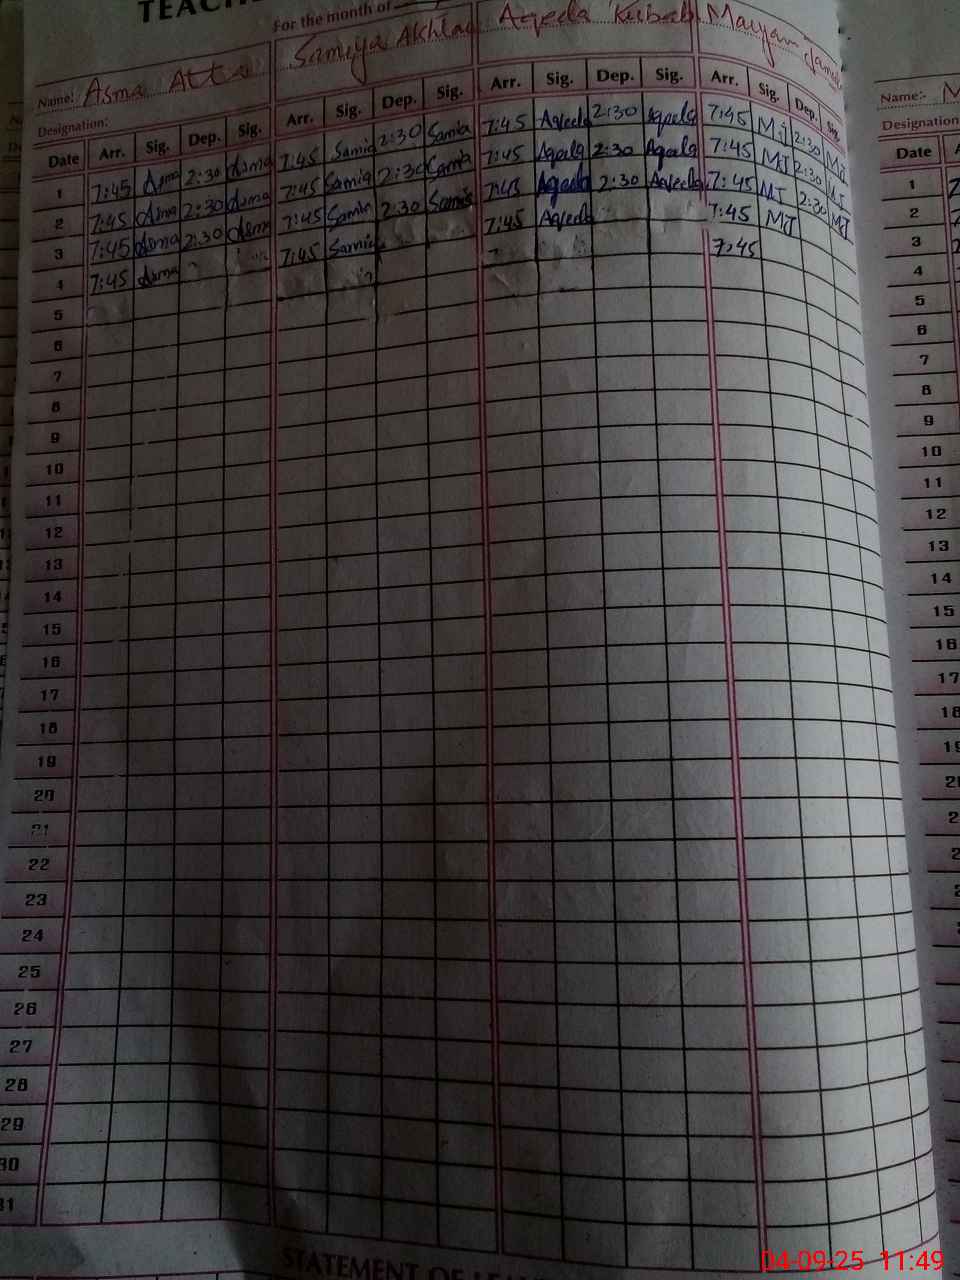 TEACHE
For the month of
Name: Asma Atta Samiya Akhlaq Aqeela Kubab Maryam Jamil
Designation:
Date Arr. Sig. Dep. Sig. Arr. Sig. Dep. Sig. Arr. Sig. Dep. Sig. Arr. Sig. Dep. Sig.
1 7:45 Asma 2:30 Asma 7:45 Samia 2:30 Samia 7:45 Aqeela 2:30 Aqeela 7:45 MJ 2:30 MJ
2 7:45 Asma 2:30 Asma 7:45 Samia 2:30 Samia 7:45 Aqeela 2:30 Aqeela 7:45 MJ 2:30 MJ
3 7:45 Asma 2:30 Asma 7:45 Samia 2:30 Samia 7:45 Aqeela 2:30 Aqeela 7:45 MJ 2:30 MJ
4 7:45 Asma 7:45 Samia 7:45 Aqeela 7:45 MJ
5 7:45
6
7
8
9
10
11
12
13
14
15
16
17
18
19
20
21
22
23
24
25
26
27
28
29
30
31
STATEMENT OF LEA
Name:- M
Designation
Date A
1 7
2 7
3
4
5
6
7
8
9
10
11
12
13
14
15
16
17
18
19
04-09-25 11:49